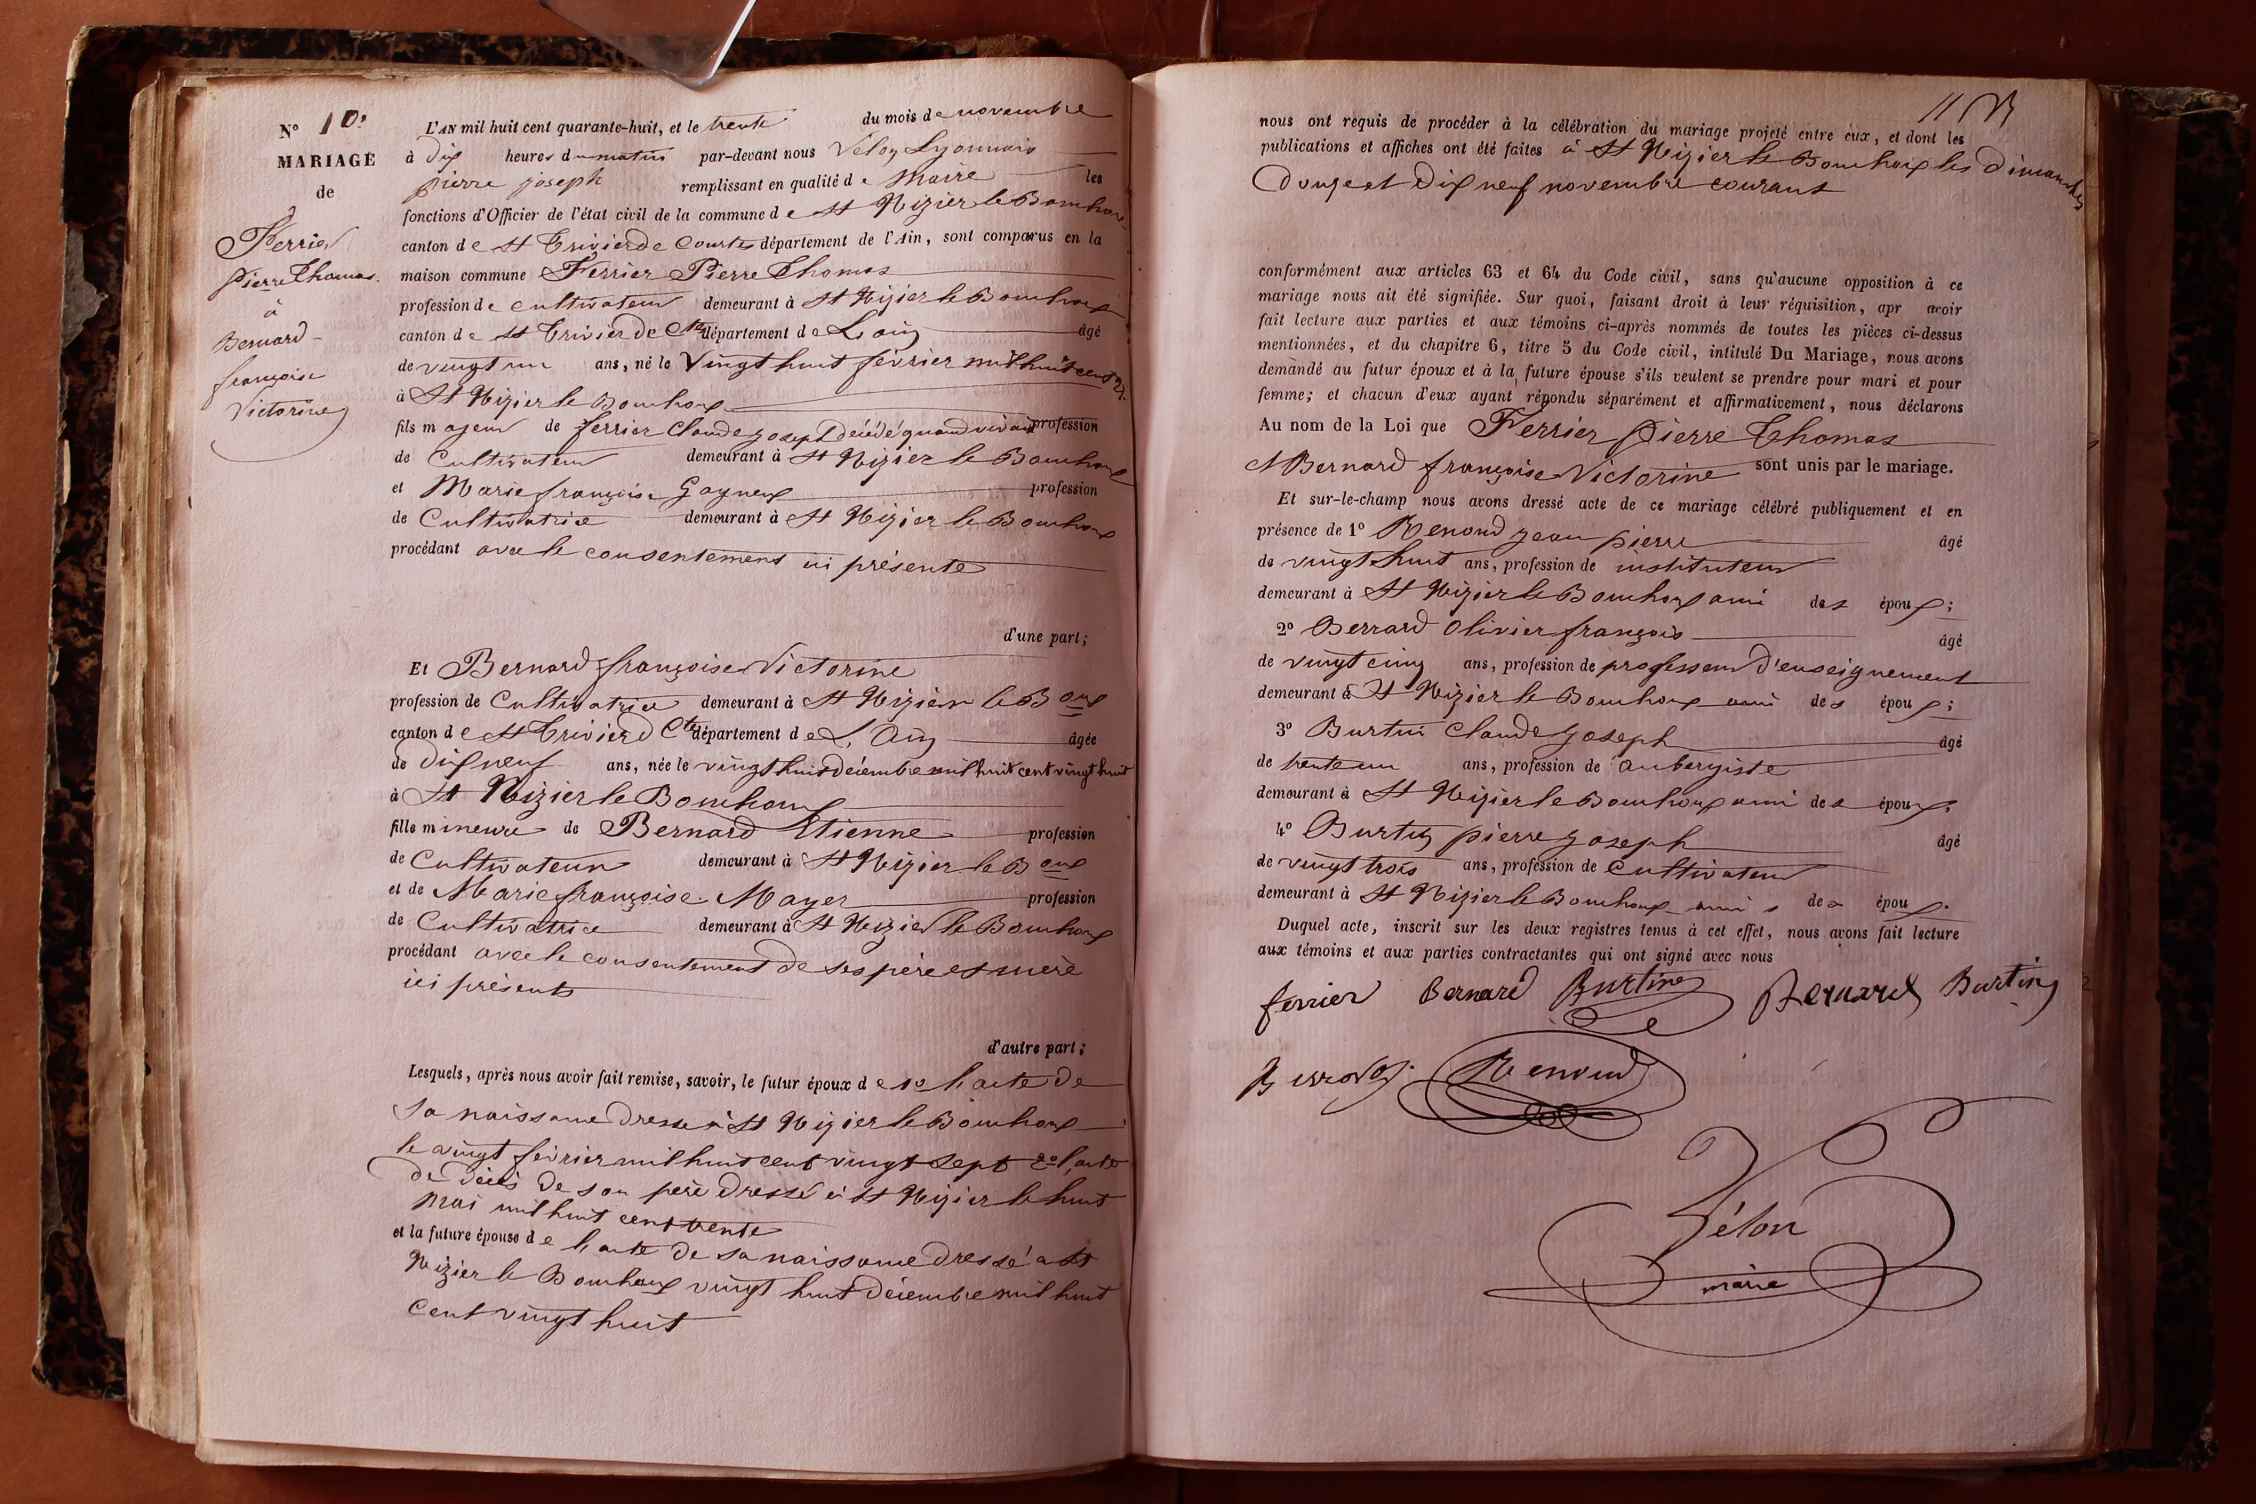 N° 10.
MARIAGE
de
Ferrier
pierre Thomas
à
Bernard
françoise
Victorine
L'AN mil huit cent quarante-huit, et le trente du mois de novembre
à dix heures du matin par-devant nous Vélon Lyonnais
pierre joseph remplissant en qualité de Maire les
fonctions d'Officier de l'état civil de la commune de St Nizier le Bouchoux
canton de St Trivier de Courtes département de l'Ain, sont comparus en la
maison commune Ferrier Pierre Thomas
profession de cultivateur demeurant à St Nizier le Bouchoux
canton de St Trivier de Ctes département de L'ain âgé
de vingt un ans, né le Vingt huit février mil huit cent 27.
à St Nizier le Bouchoux
fils majeur de ferrier Claude joseph décédé quand vivait profession
de Cultivateur demeurant à St Nizier le Bouchoux
et Marie françoise Gagneux profession
de Cultivatrice demeurant à St Nizier le Bouchoux
procédant avec le consentement ici présente
d'une part;
Et Bernard françoise Victorine
profession de Cultivatrice demeurant à St Nizier le Boux
canton de St Trivier d Ctes département de L'Ain âgée
de dix neuf ans, née le vingt huit décembre mil huit cent vingt huit
à St Nizier le Bouchoux
fille mineure de Bernard Etienne profession
de Cultivateur demeurant à St Nizier le Boux
et de Marie françoise Mayer profession
de Cultivatrice demeurant à St Nizier le Bouchoux
procédant avec le consentement de ses père et mère
ici présents
d'autre part;
Lesquels, après nous avoir fait remise, savoir, le futur époux de 1o l'acte de
sa naissance dressé à St Nizier le Bouchoux
le vingt février mil huit cent vingt sept 2o l'acte
de décès de son père dressé à St Nizier le huit
mai mil huit cent trente
et la future épouse de l'acte de sa naissance dressé a St
Nizier le Bouchoux vingt huit décembre mil huit
cent vingt huit
11
nous ont requis de procéder à la célébration du mariage projeté entre eux, et dont les
publications et affiches ont été faites à St Nizier le Bouchoux les dimanches
douze et dix neuf novembre courant
conformément aux articles 63 et 64 du Code civil, sans qu'aucune opposition à ce
mariage nous ait été signifiée. Sur quoi, faisant droit à leur réquisition, apr avoir
fait lecture aux parties et aux témoins ci-après nommés de toutes les pièces ci-dessus
mentionnées, et du chapitre 6, titre 5 du Code civil, intitulé Du Mariage, nous avons
demandé au futur époux et à la future épouse s'ils veulent se prendre pour mari et pour
femme; et chacun d'eux ayant répondu séparément et affirmativement, nous déclarons
Au nom de la Loi que Ferrier pierre Thomas
et Bernard françoise Victorine sont unis par le mariage.
Et sur-le-champ nous avons dressé acte de ce mariage célébré publiquement et en
présence de 1° Renoud jean pierre âgé
de vingt huit ans, profession de instituteur
demeurant à St Nizier le Bouchoux ami des époux;
2° Berrard Olivier françois âgé
de vingt cinq ans, profession de professeur d'enseignement
demeurant à St Nizier le Bouchoux ami des époux;
3° Burtin Claude joseph âgé
de trente un ans, profession de aubergiste
demeurant à St Nizier le Bouchoux ami des époux;
4° Burtin pierre joseph âgé
de vingt trois ans, profession de Cultivateur
demeurant à St Nizier le Bouchoux amis des époux.
Duquel acte, inscrit sur les deux registres tenus à cet effet, nous avons fait lecture
aux témoins et aux parties contractantes qui ont signé avec nous
ferrier Bernard Burtin Bernard Burtin
Berrard Renoud
Vélon
maire